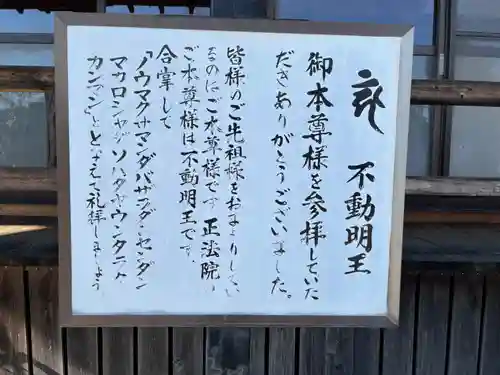 不動明王
御本尊様を参拝していた
だきありがとうございました。
皆様のご先祖様をおまもりしてい
るのにご本尊様です。正法院の
ご本尊様は不動明王です。
合掌して
「ノウマクサマンダバザラダ・センダン
マカロシャダソハタヤウンタラタ
カンマン」ととなえて礼拝しましょう